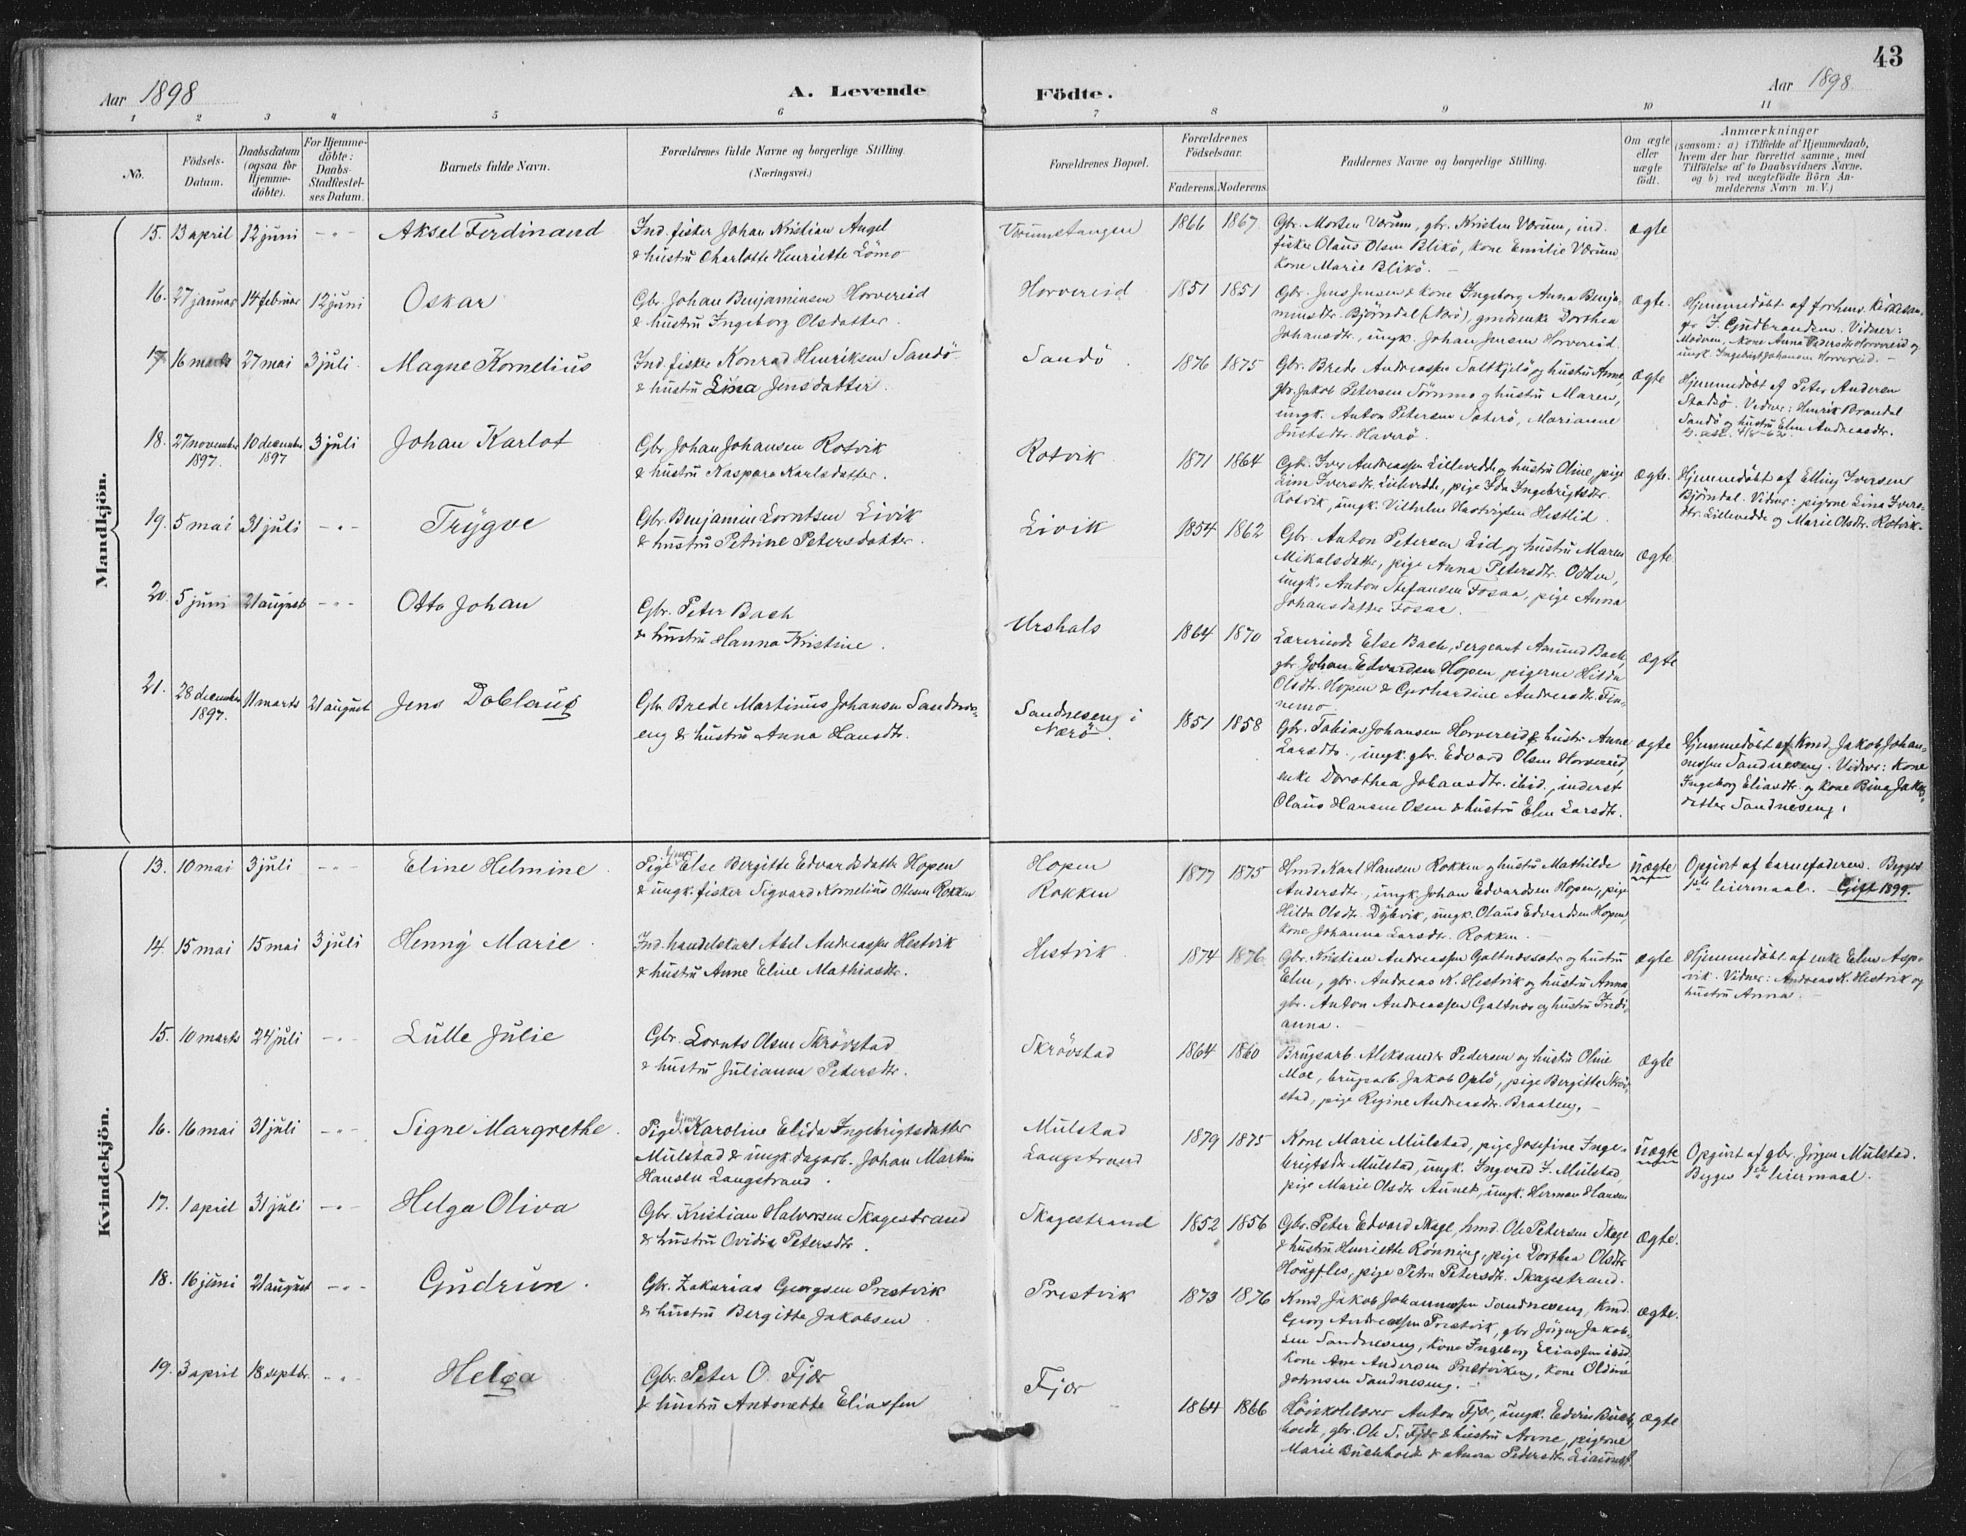 43
Aar 1898
A. Levende
Födte.
Aar 1898.
1 2 3 4 5 6 7 8 9 10 11
No.
Födsels-
Datum.
Daabsdatum
(ogsaa for
Hjemme-
döbte).
For Hjemme-
döbte:
Daabs-
Stadfæstel-
ses Datum.
Barnets fulde Navn.
Forældrenes fulde Navne og borgerlige Stilling.
(Næringsvei.)
Forældrenes Bopæl.
Forældrenes
Födselsaar.
Faderens. Moderens.
Faddernes Navne og borgerlige Stilling.
Om ægte
eller
uægte
födt.
Anmærkninger
(saasom: a) i Tilfælde af Hjemmedaab,
hvem der har forrettet samme, med
Tilföielse af to Daabsvidners Navne,
og b) ved uægtefödte Börn An-
melderens Navn m. V.)
Mandkjön.
15. 13 april 12 juni -"- Aksel Ferdinand
Ind. fisker Johan Kristian Angel
& hustru Charlotte Henriette Lömo
Værumstangen 1866 1867
Gbr. Morten Værum, gbr. Kristen Værum, ind.
fisker Olaus Olsen Blikö, kone Emilie Værum
kone Marie Blikö.
ægte
16. 27 januar 14 februar 12 juni Oskar
Gbr. Johan Benjaminsen Horvereid
& hustru Ingeborg Olsdatter.
Horvereid 1851 1851
Gbr. Jens Jensen & kone Ingeborg Anna Benja-
minsdtr. Bjørndal (Nærö), gmdenke Dorthea
Johansdtr., ungk. Johan Jensen Horvereid.
ægte.
Hjemmedöbt af forhenv. kirkesan-
ger J. Gudbrandsen. Vidner:
Modren, kone Anna Pedersdtr Horvereid og
ungk. Ingebrigt Johansen Horvereid.
17. 16 marts 27 mai 3 juli. Magne Kornelius
Ind. fisker Konrad Henriksen Sandö
& hustru Lina Jensdatter.
Sandö 1876 1875
Gbr. Brede Andreassen Saltkjelö og hustru Anne,
gbr. Jakob Petersen Sörnmo og hustru Maren,
ungk. Anton Petersen Saterö, Marianne
Justsdtr. Haverö.
ægte
Hjemmedöbt af Peter Andersen
Stadsö. Vidner: Henrik Brandal
Sandö og hustru Elen Andreasdtr.
18. 27 november 1897. 10 december 1897 3 juli Johan Karlot
Gbr. Johan Johansen Rotvik
& hustru Kaspara Karlsdatter.
Rotvik 1871 1864
Gbr. Iver Andreassen Lillevedde og hustru Oline, pige
Lina Iversdtr. Lillevedde, pige Ida Ingebrigtsdtr.
Rotvik, ungk. Vilhelm Hartvigsen Hestlid.
ægte.
Hjemmedöbt af Elling Iversen
Björndal. Vidner: pigerne Lina Ivers-
dtr. Lillevedde og Marie Olsdtr. Rotvik.
19. 5 mai 31 juli -"- Trygve
Gbr. Benjamin Lorntsen Livik
& hustru Petrine Petersdatter.
Livik 1854 1862
Gbr. Anton Petersen Lid og hustru Maren
Mikalsdatter, pige Anna Petersdtr. Odden,
ungk. Anton Stefansen Fosaa, pige Anna
Johansdatter Fosaa.
ægte
20. 5 juni 21 august -"- Otto Johan
Gbr. Peter Bach
& hustru Hanna Kristine.
Urshals 1864 1870
Lærerinde Else Bach, sergeant Amund Bach,
gbr. Johan Edvardsen Hopen, pigerne Hilda
Olsdtr. Hopen & Gerhardine Andreasdtr. Fin-
nemo
ægte
21. 28 december 1897. 11 marts 21 august Jens Doblaug
Gbr. Brede Martinus Johansen Sandnes-
eng & hustru Anna Hansdtr.
Sandneseng i
Nærö. 1851 1858
Gbr. Tobias Johansen Horvereid & hustr. Anne
Larsdtr., ungk. gbr. Edvard Olsen Horvereid,
enke Dorothea Johansdtr. ibid., inderst
Olaus Hansen Osen & hustru Elen Larsdtr.
ægte
Hjemmedöbt af kmd. Jakob Johan-
nessen Sandneseng. Vidner: kone
Ingeborg Eliasdtr. og kone Bina Jakobs-
datter Sandneseng.
Kvindekjön.
13. 10 mai 3 juli -"- Eline Helmine.
Pige Else Bergitte Edvardsdatter Hopen
& ungk. fisker Sigvard Kornelius Olsen Rokken
Hopen
Rokken 1877 1875
Hmd. Karl Hansen Rokken og hustru Mathilde
Andersdtr., ungk. Johan Edvardsen Hopen, pige
Hilda Olsdtr. Dybvik, ungk. Olaus Edvardsen Hopen,
kone Johanna Larsdtr. Rokken.
uægte
Opgivet af barnefaderen. Begges
1ste leiermaal. Gift 1899.
14. 15 mai 15 mai 3 juli Henny Marie.
Ind. handelskarl Abel Andreassen Hestvik
& hustru Anne Eline Mathiasdtr.
Hestvik 1874 1876
Gbr. Kristian Andreassen Galtnessæter og hustru
Elen, gbr. Andreas K. Hestvik og hustru Anna,
gbr. Anton Andreassen Galtnes og hustru Indi-
anna.
ægte
Hjemmedöbt af enke Elen Asp-
vik. Vidner: Andreas K. Hestvik og
hustru Anna.
15. 10 marts 24 juli -"- Lulle Julie
Gbr. Lornts Olsen Skrövstad
& hustru Julianna Petersdtr.
Skrövstad 1864 1860
Brugsarb. Aleksander Pedersen og hustru Oline
Moe, brugsarb. Jakob Oplö, pige Bergitte Skröv-
stad, pige Regine Andreasdtr. Braateng.
ægte
16. 16 mai 31 juli -"- Signe Margrethe.
Pige Karoline Elida Ingebrigtsdatter
Mulstad & ungk. dagarb. Johan Martin
Hansen Langstrand.
Mulstad
Langstrand 1879 1875
Kone Marie Mulstad, pige Josefine Inge-
brigtsdtr. Mulstad, ungk. Ingvard J. Mulstad,
pige Marie Olsdtr. Aunet, ungk. Herman Hansen
uægte
Opgivet af gbr. Jörgen Mulstad.
Begges 1ste leiermaal.
17. 1 april 31 juli -"- Helga Oliva
Gbr. Kristian Halvorsen Skagestrand
& hustru Ovidia Petersdtr.
Skagestrand 1852 1856
Gbr. Peter Edvard Skage, hmd. Ole Petersen Skage
& hustru Henriette Rønning, pige Dorthea Olsdtr.
Hougfles, pige Petra Petersdtr. Skagestrand.
ægte.
18. 16 juni 21 august -"- Gudrun.
Gbr. Zakarias Georgsen Prestvik
& hustru Bergitte Jakobsen
Prestvik 1873 1876
Kmd. Jakob Johannessen Sandneseng, kmd.
Georg Andreassen Prestvik, gbr. Jörgen Jakob-
sen Sandneseng, kone Ingeborg Eliassen ibid.
kone Ane Andersen Prestvikeng, kone Oldine
Johnsen Sandneseng.
ægte.
19. 3 april 18 septbr. -"- Helga
Gbr. Peter O. Fjær
& hustru Antonette Eliassen
Fjær 1864 1866
Höiskolelærer Anton Fjær, ungk. Edvin Buch-
holdt, gbr. Ole S. Fjær & hustru Anne, pigerne
Marie Buchholdt & Anna Pedersdtr.
ægte